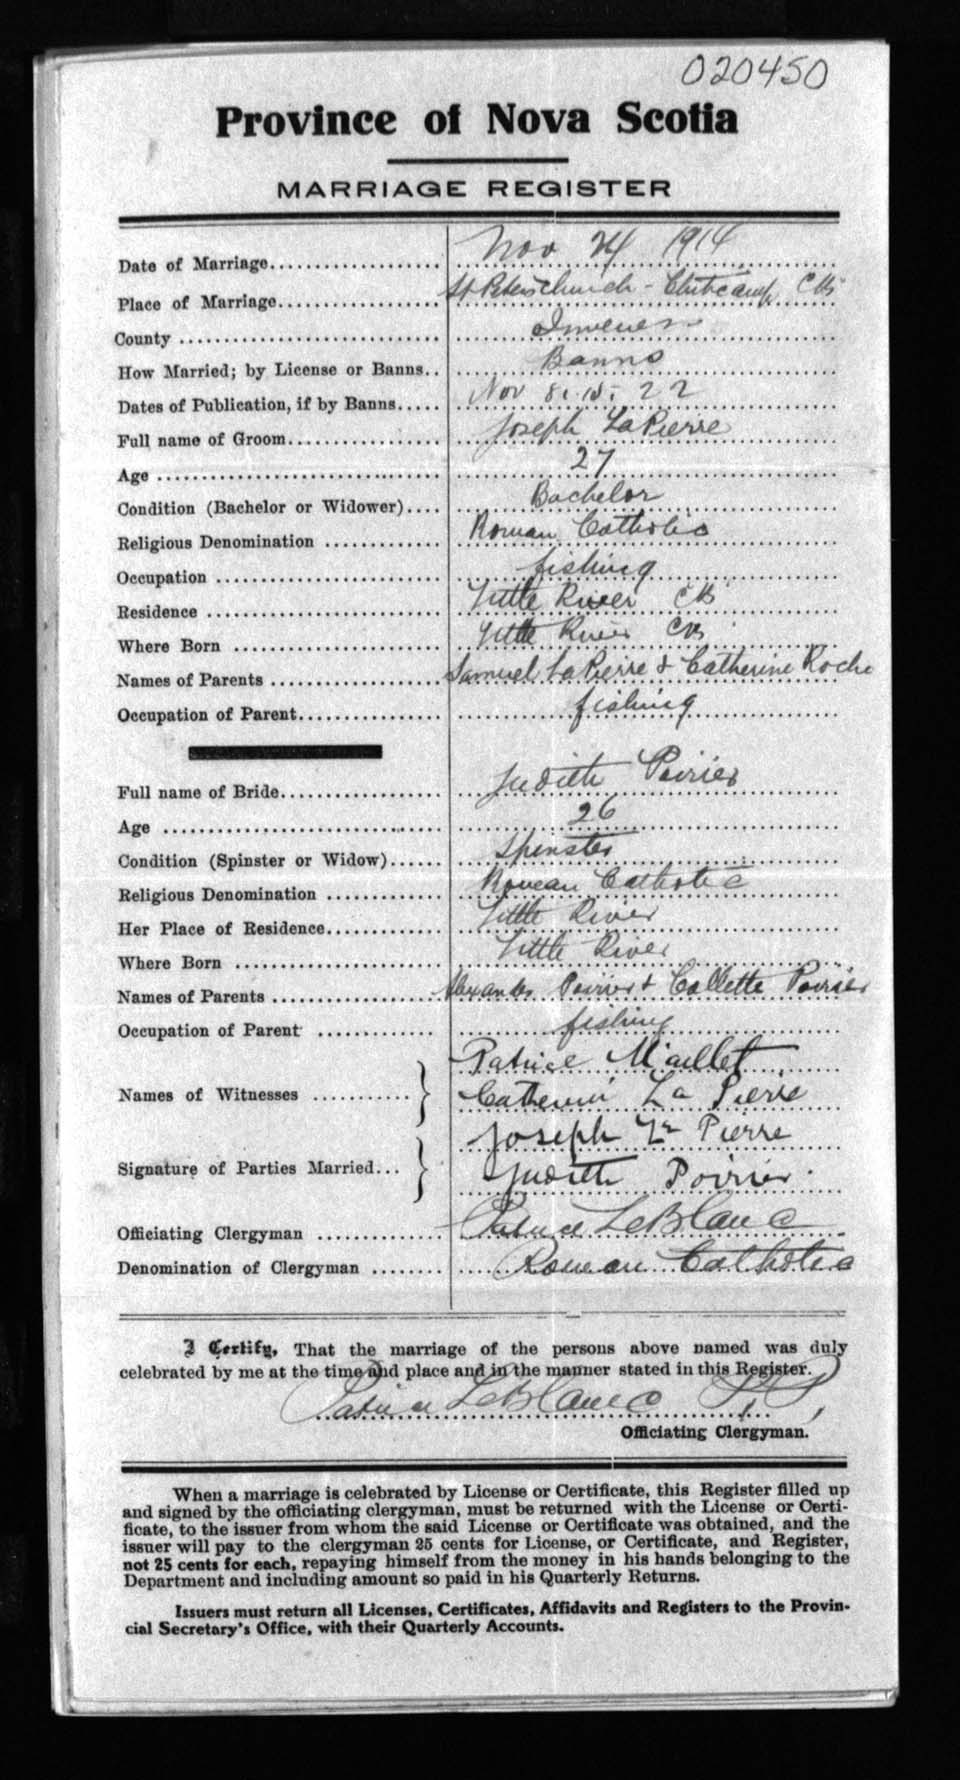 020450
Province of Nova Scotia
MARRIAGE REGISTER
Date of Marriage.................... Nov 24 1914
Place of Marriage................... St Peters Church - Chitecamp, CB
County ............................. Inverness
How Married; by License or Banns.. Banns
Dates of Publication, if by Banns..... Nov 8. 15. 22
Full name of Groom.................. Joseph LaPierre
Age ................................ 27
Condition (Bachelor or Widower).... Bachelor
Religious Denomination ............. Roman Catholic
Occupation ......................... fishing
Residence .......................... Little River CB
Where Born ......................... Little River CB
Names of Parents ................... Samuel LaPierre & Catherine Roche
Occupation of Parent................ fishing
Full name of Bride.................. Judith Poirier
Age ................................ 26
Condition (Spinster or Widow)...... Spinster
Religious Denomination ............. Roman Catholic
Her Place of Residence............. Little River
Where Born ......................... Little River
Names of Parents ................... Alexander Poirier & Collette Poirier
Occupation of Parent ............... fishing
Patrice Maillet
Names of Witnesses ........... Catherin La Pierre
Joseph La Pierre
Signature of Parties Married... Judith Poirier
Officiating Clergyman .............. Patrice LeBlanc
Denomination of Clergyman ........ Roman Catholic
I Certify, That the marriage of the persons above named was duly
celebrated by me at the time and place and in the manner stated in this Register.
Patrice LeBlanc P.P.
Officiating Clergyman.
When a marriage is celebrated by License or Certificate, this Register filled up
and signed by the officiating clergyman, must be returned with the License or Certi-
ficate, to the issuer from whom the said License or Certificate was obtained, and the
issuer will pay to the clergyman 25 cents for License, or Certificate, and Register,
not 25 cents for each, repaying himself from the money in his hands belonging to the
Department and including amount so paid in his Quarterly Returns.
Issuers must return all Licenses, Certificates, Affidavits and Registers to the Provin-
cial Secretary's Office, with their Quarterly Accounts.